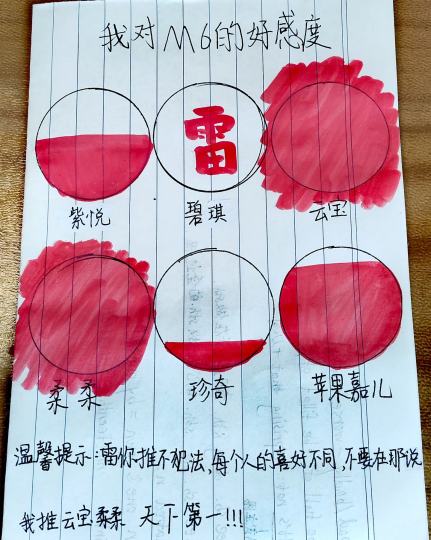 我对M6的好感度
雷
紫悦 碧琪 云宝
柔柔 珍奇 苹果嘉儿
温馨提示:雷你推不犯法,每个人的喜好不同,不要在那说
我推云宝柔柔 天下第一!!!